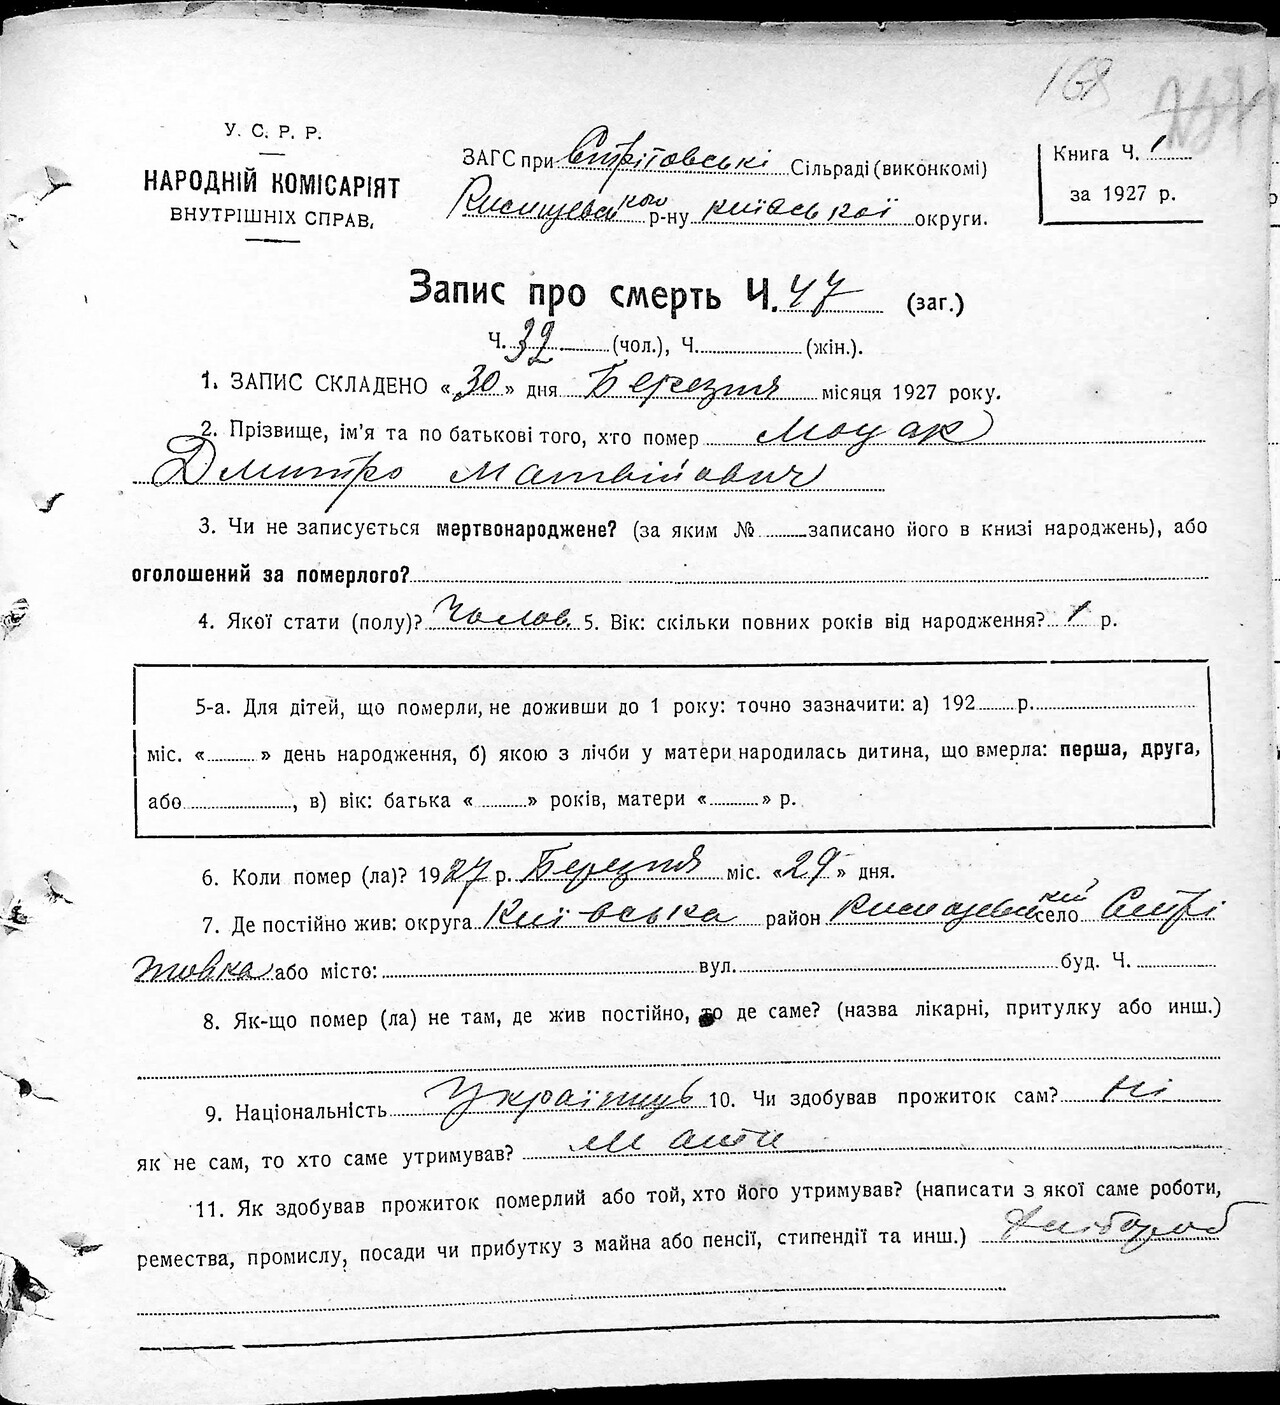 168
У. С. Р. Р.
НАРОДНІЙ КОМІСАРІЯТ
ВНУТРІШНІХ СПРАВ.
ЗАГС при Стрітовські Сільраді (виконкомі)
р-ну київської округи.
Книга Ч. 1
за 1927 р.
Запис про смерть Ч. 47 (заг.)
Ч. 32 (чол.), Ч. (жін.).
1. ЗАПИС СКЛАДЕНО «30» дня Березня місяця 1927 року.
2. Прізвище, ім'я та по батькові того, хто помер Моцар
Дмитро Матвійович
3. Чи не записується мертвонароджене? (за яким № записано його в книзі народжень), або
оголошений за померлого?
4. Якої стати (полу)? Чолов. 5. Вік: скільки повних років від народження? 1 р.
5-а. Для дітей, що померли, не доживши до 1 року: точно зазначити: а) 192 р.
міс. « » день народження, б) якою з лічби у матери народилась дитина, що вмерла: перша, друга,
або , в) вік: батька « » років, матери « » р.
6. Коли помер (ла)? 1927 р. Березня міс. «29» дня.
7. Де постійно жив: округа Київська район село Стрі
товка або місто: вул. буд. Ч.
8. Як-що помер (ла) не там, де жив постійно, то де саме? (назва лікарні, притулку або инш.)
9. Національність Українць 10. Чи здобував прожиток сам? Ні
як не сам, то хто саме утримував? Мати
11. Як здобував прожиток померлий або той, хто його утримував? (написати з якої саме роботи,
ремества, промислу, посади чи прибутку з майна або пенсії, стипендії та инш.) Хлібороб